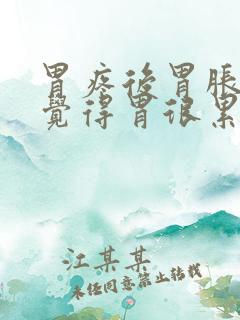 胃疼後胃脹
覺得胃很累
江某某
未经同意禁止转载